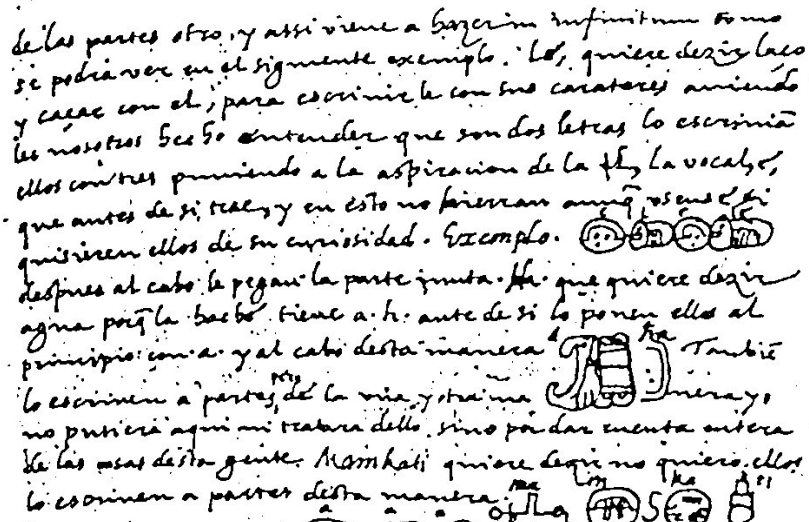 de las partes otro, y assi viene a hazer in infinitum como
se podra ver en el siguiente exemplo. Lé, quiere dezir laço
y caçar con el, para escrivirle con sus carateres aviendo
les nosotros hecho entender que son dos letras lo escrivian
ellos con tres puniendo a la aspiracion de la l, la vocal, é,
que antes de si trae, y en esto no hierran aunq̃ usense, si
quisieren ellos de su curiosidad. Exemplo.
despues al cabo le pegan la parte junta. Ha. que quiere dezir
agua porq̃ la hache tiene a. h. ante de si lo ponen ellos al
principio con a. y al cabo desta manera a ha Tambiẽ
lo escriven a partes, de la una y otra ma nera y,
no pusiera aqui ni tratara dello, sino por dar cuenta entera
de las cosas desta gente. Mainkati quiere dezir no quiero, ellos
lo escriven a partes desta manera. ma in ka ti